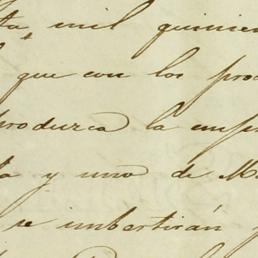 ta mil quinien
que con los pro
produzca la emp
ta y uno de M
se imbertirán